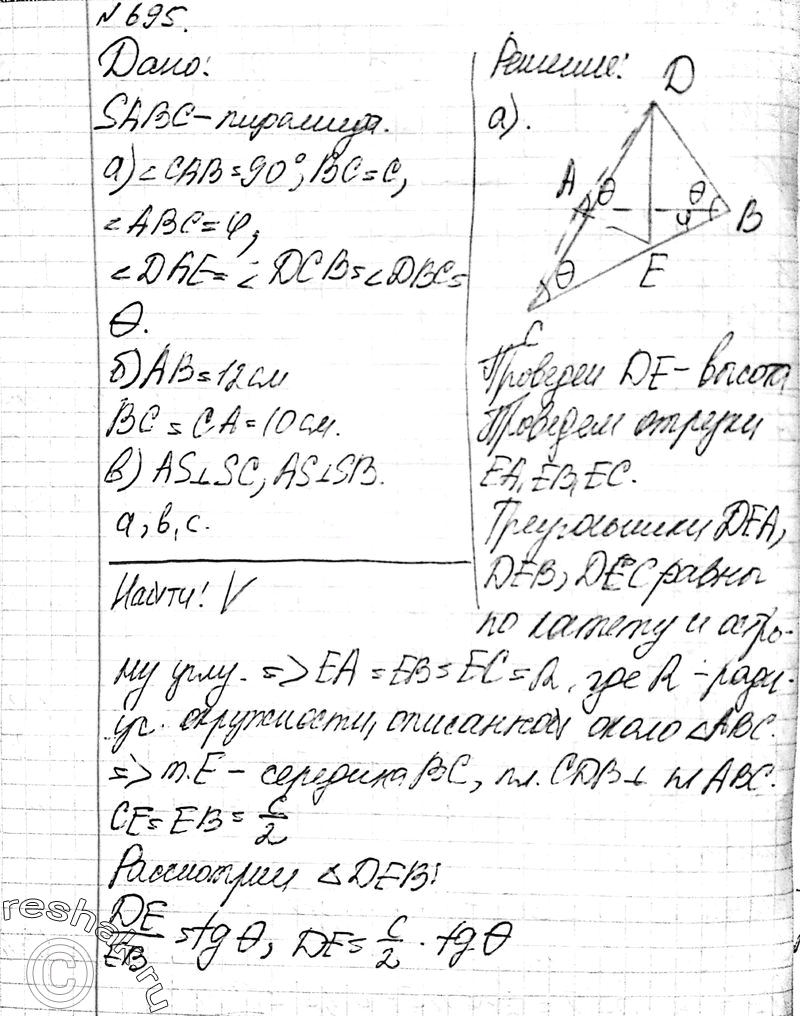 №695.
Дано:
SABC – пирамида.
а) ∠CAB = 90°, BC = c,
∠ABC = φ,
∠DAE = ∠DCB = ∠DBC =
θ.
б) AB = 12 см
BC = CA = 10 см.
в) AS⊥SC, AS⊥SB.
a, b, c.
Найти: V
Решение:
а).
D
A θ θ φ B
θ E
C
Проведем DE – высота
Проведем отрезки
EA, EB, EC.
Треугольники DEA,
DEB, DEC равны
по катету и остро-
му углу. => EA = EB = EC = R, где R – ради-
ус окружности, описанной около △ABC.
=> т. E – середина BC, пл. CDB ⊥ пл ABC.
CE = EB = c/2
Рассмотрим △DEB:
DE/EB = tg θ, DE = c/2 · tg θ
reshak.ru
©